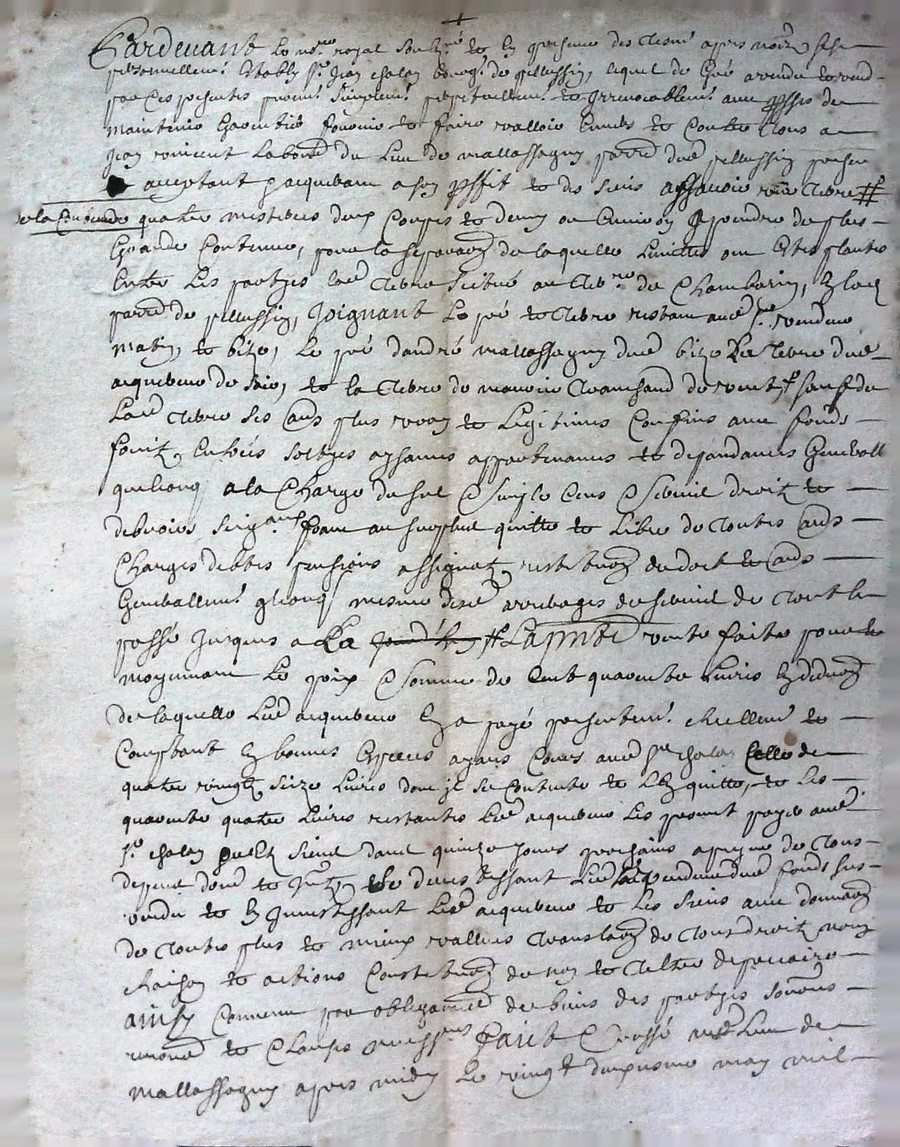 Pardevant le no.re royal soubz.né et en presence des tesm. apres nommes s'est
personnellem.t estably s.r Jean chalon bourg.s de pellussin, lequel de gré a vendu et vend
par ces presentes purem.t simplem.t perpetuellem.t et irrevocablem.t avec p̃sses de
maintenir garentir fournir et faire valloir envers et contre tous a
Jean vincent laboure.r du lieu de mallassagny parr.e dud. pellussin present
acceptant & acquereur a son proffit et des siens assavoir une terre #
de la contenue quatre mesterees deux coupes et demy ou environ a prendre de plus
grande contenue, pour la separaon de laquelle limittes ont estes plantes
entre les partyes lad. terre scitué au terr.re de Chambarin, en lad.
parr.e de pellussin, Joignant le pré et terre restant aud. s.r vendeur
matin, et bize, le pré d'andré mallassagny dud. bize la terre dud.
acquereur de soir, et la terre de marchand de vent, sauf de
lad. terre ses autres plus vrays et legitimes confins avec fonds
fruitz, entrées sortyes aysances appartenances et dependances generall
quelconq. a la charge du seul & simple cens & servis droitz et
debvoirs seig.aux franc au surplus quitte et libre de toutes autres
charges debtes pensions assignatz restituon de dot et autres
generallem.t qlconq. mesme des arreirages de servis de tout le
passé jusques a La # La p̃nte vente faite pour et
moyennant le prix & somme de cent quarente livres en deduon
de laquelle led. acquereur en a payé presentem.t reellem.t et
comptant en bonnes especes ayans cours aud. s.r chalon celle de
quatre vingtz seize livres dont il se contente et l'en quitte, et les
quarente quatre livres restantes led. acquereur les promet payer aud.
s.r chalon ou es siens dans quinze jours prochains a peyne de tous
despens dom. et intz. se devestissant led. vendeur dud. fonds sus
vendu et en investissant led. acquereur et les siens avec donnaon
de toutes plus et mieux vallues translaon de tous droitz noms
raisons et actions constituon de nom et tiltre de precaire
ainsy convenu par obligaon de biens des partyes soumis
renon.es et clauses Faict & passé aud. lieu de
mallassagny apres midy le vingt deuxiesme may mil